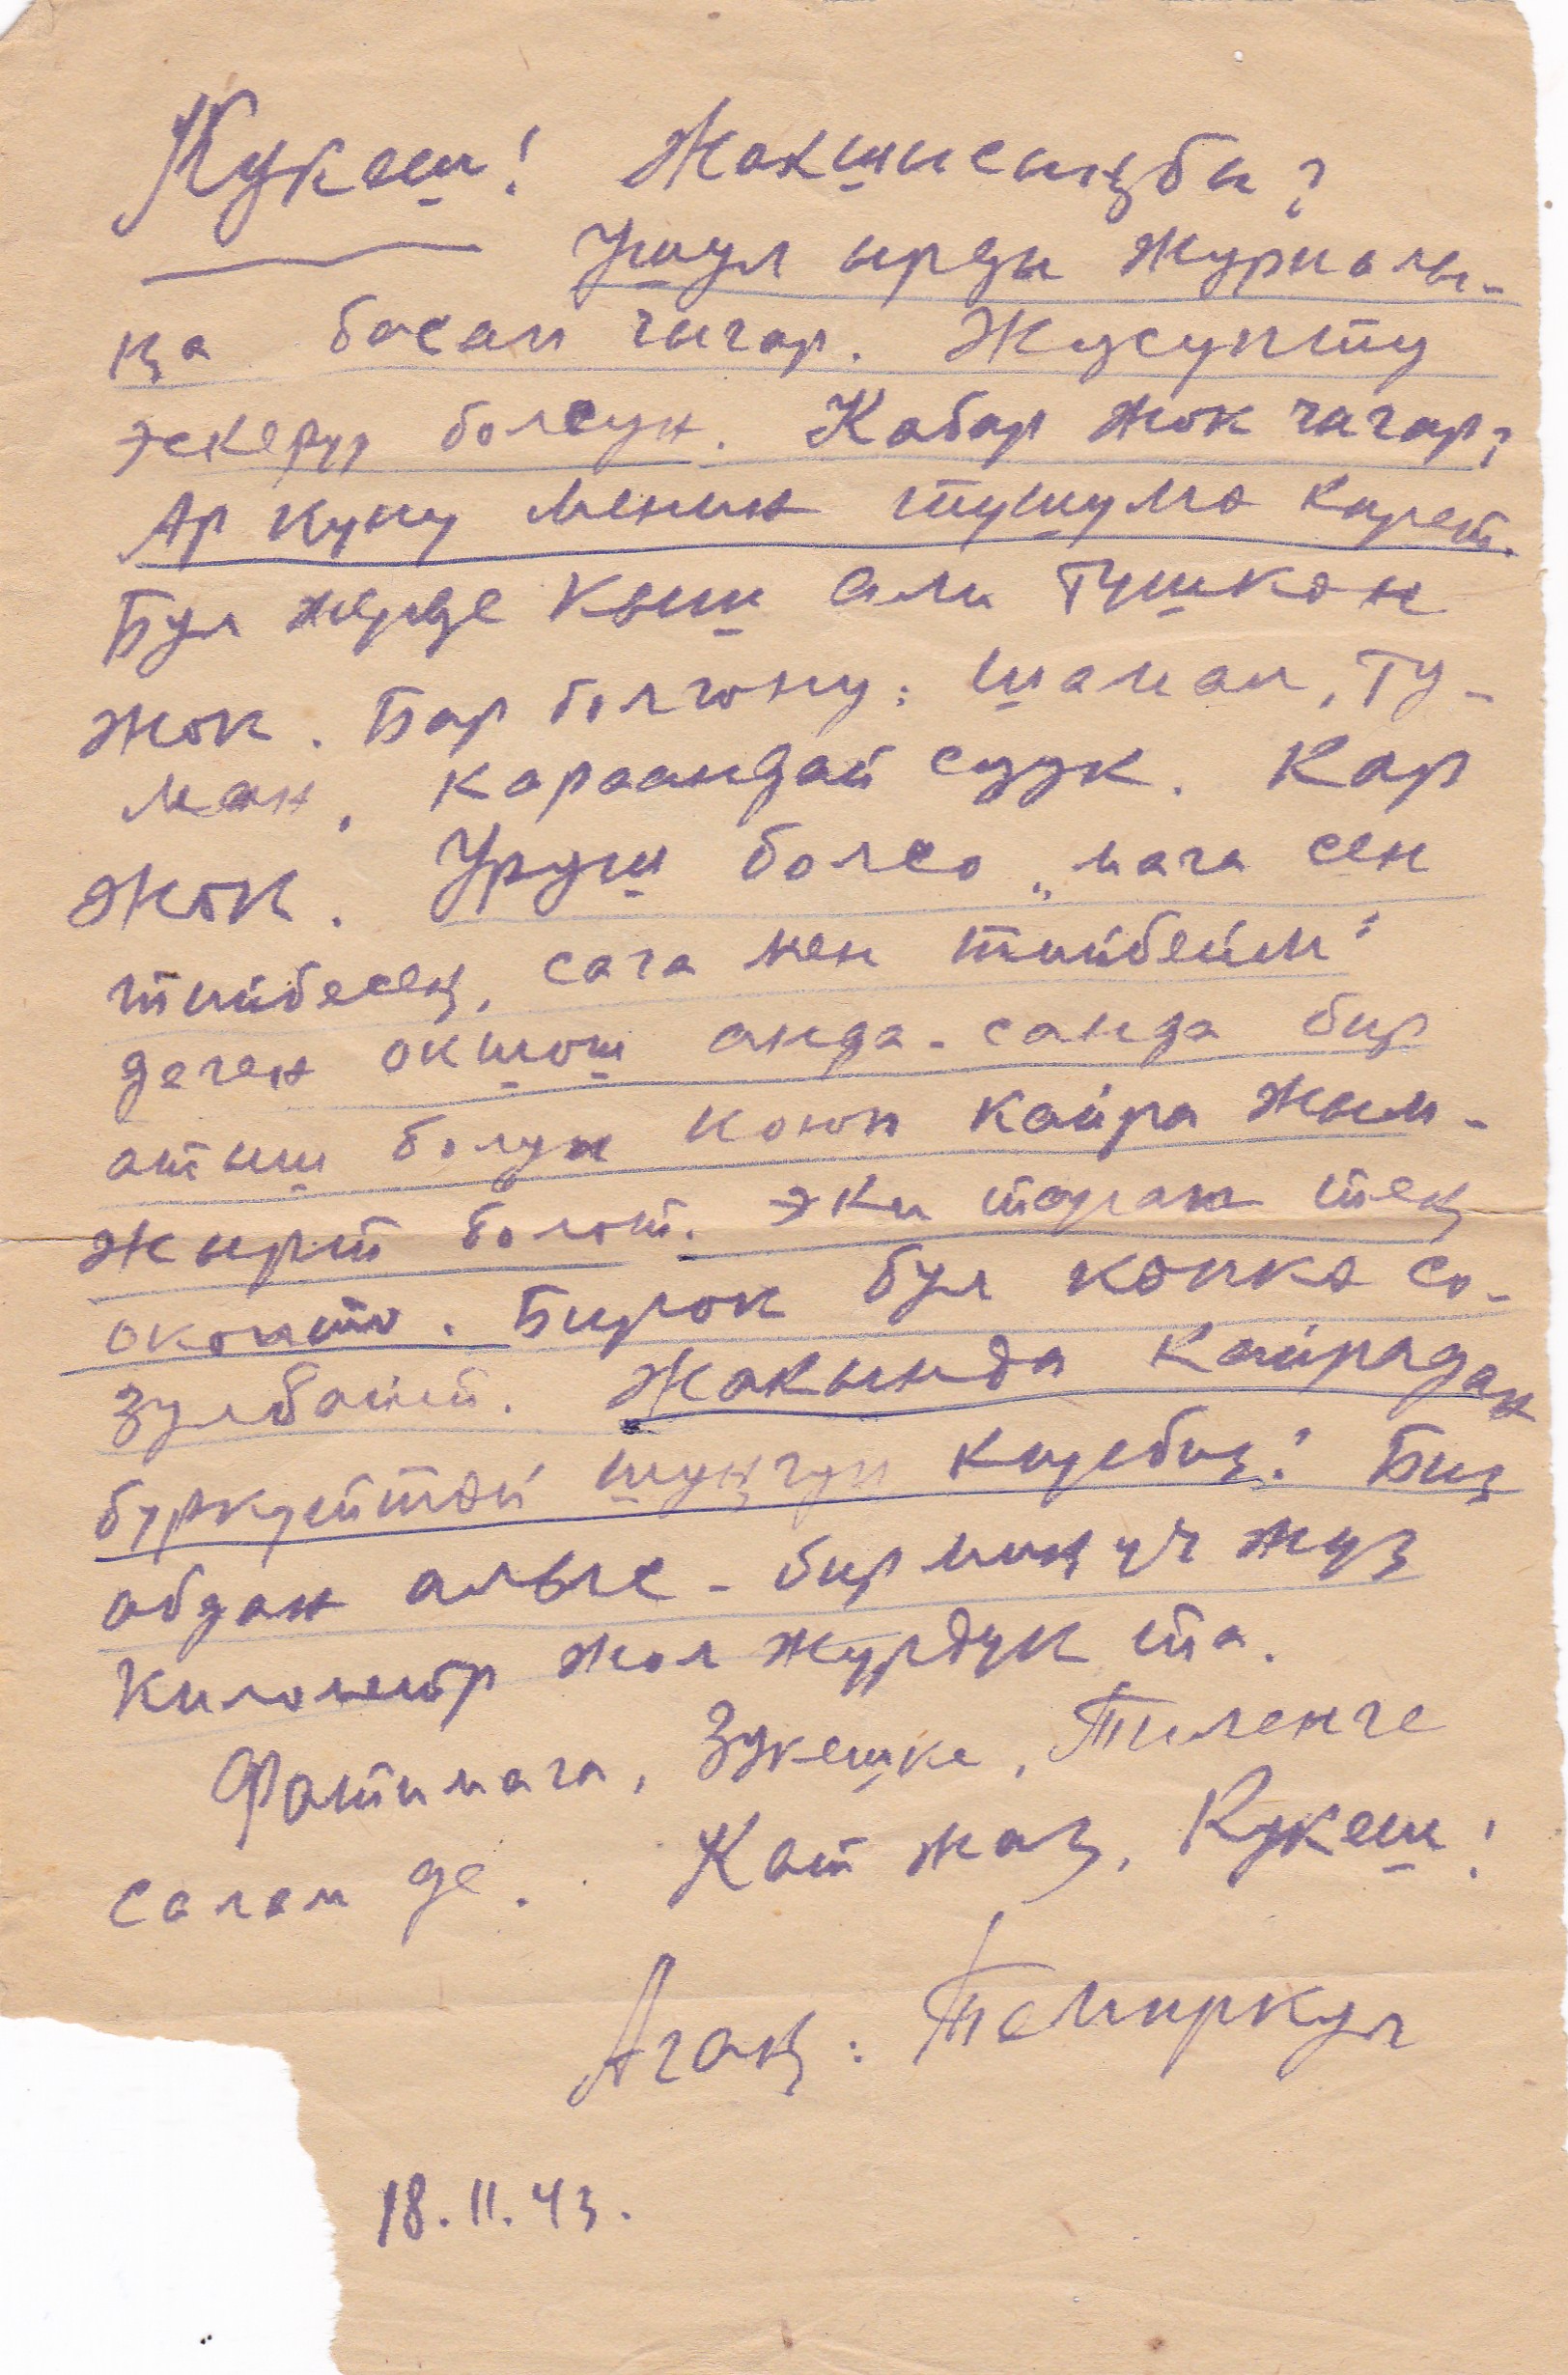 Кукеш! Жакшысыңбы?
Ушул ырды журналы-
ңа басып чыгар. Жусупту
эскерүү болсун. Кабар жок чыгар?
Ар күнү менин түшүмө кирет.
Бул жерде кыш али түшкөн
жок. Бар болгону: шамал, ту-
ман, караандай суук. Кар
жок. Уруш болсо „мага сен
тийбесең, сага мен тийбейм“
деген окшош анда-санда бир
атыш болуп коюп кайра жым-
жырт болот. Эки тарап тең
окопто. Бирок бул көпкө со-
зулбайт. Жакында кайрадан
бүркүттөй шуңгуп киребиз! Биз
абдан алыс - бир миң үч жүз
километр жол жүрдүк та.
Фатимага, Зукешке, Тиленге
салам де. Кат жаз, Кукеш!
Агаң: Темиркул
18.11.43.